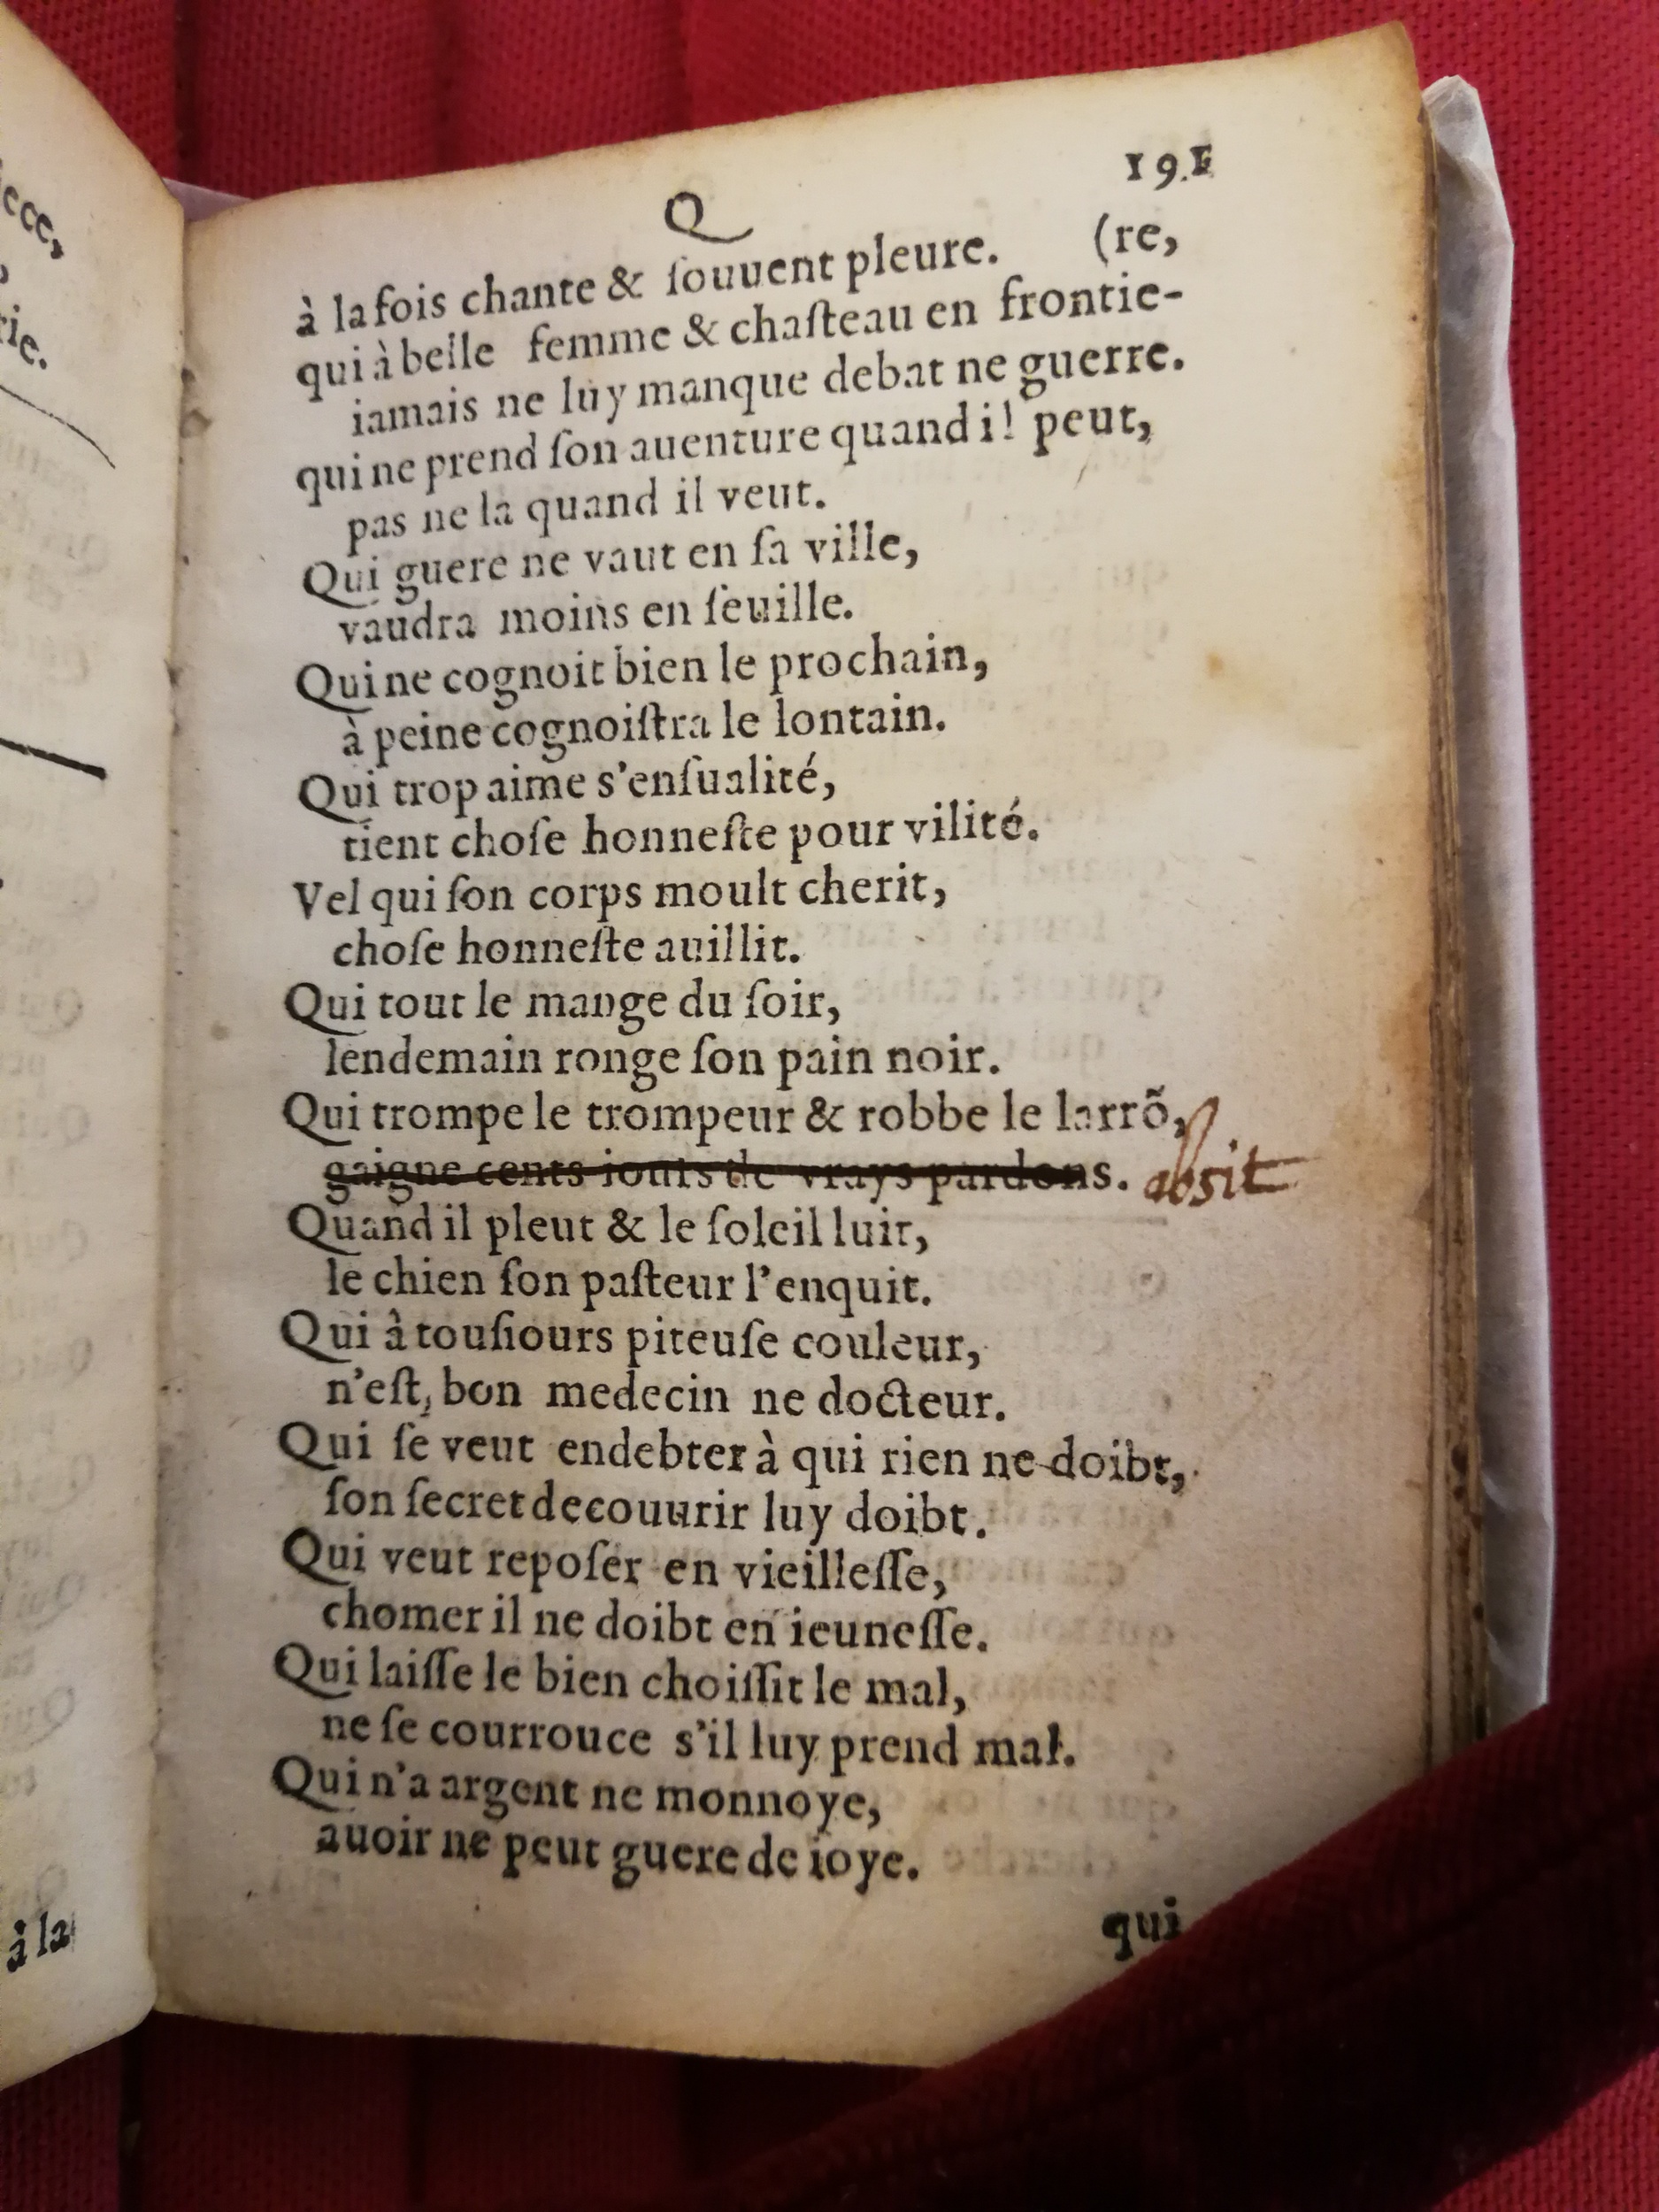 ece,
rie.
à la
Q
191
à la fois chante & ſouuent pleure. (re,
qui à belle femme & chaſteau en frontie-
iamais ne luy manque debat ne guerre.
qui ne prend ſon auenture quand il peut,
pas ne la quand il veut.
Qui guere ne vaut en ſa ville,
vaudra moins en ſeuille.
Qui ne cognoit bien le prochain,
à peine cognoiſtra le lontain.
Qui trop aime s'enſualité,
tient choſe honneſte pour vilité.
Vel qui ſon corps moult cherit,
choſe honneſte auillit.
Qui tout le mange du ſoir,
lendemain ronge ſon pain noir.
Qui trompe le trompeur & robbe le larrõ,
gaigne cents iours de vrays pardons. absit
Quand il pleut & le ſoleil luit,
le chien ſon paſteur l'enquit.
Qui à touſiours piteuſe couleur,
n'eſt, bon medecin ne docteur.
Qui ſe veut endebter à qui rien ne doibt,
ſon ſecret decouurir luy doibt.
Qui veut repoſer en vieilleſſe,
chomer il ne doibt en ieuneſſe.
Qui laiſſe le bien choiſſit le mal,
ne ſe courrouce s'il luy prend mal.
Qui n'a argent ne monnoye,
auoir ne peut guere de ioye.
qui